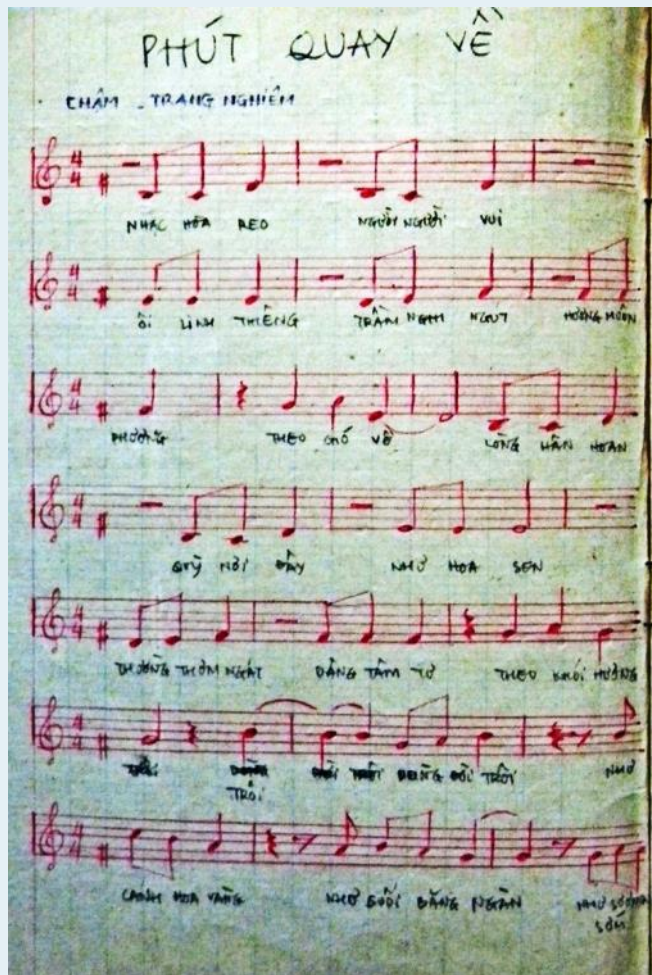 PHÚT QUAY VỀ
CHẬM - TRANG NGHIÊM
4/4
NHẠC HÒA REO NGƯỜI NGƯỜI VUI
4/4
ÔI LINH THIÊNG TRẦM NGHI NGÚT HƯƠNG MUÔN
4/4
PHƯƠNG THEO GIÓ VỀ LÒNG HÂN HOAN
4/4
QUỲ NƠI ĐÂY NHƯ HOA SEN
4/4
THƯỜNG THƠM NGÁT DÂNG TÂM TƯ THEO KHÓI HƯƠNG
4/4
TRÔI DÒNG ĐỜI TRÔI NHƯ
TRÔI
4/4
CÁNH HOA VÀNG NHƯ SUỐI BĂNG NGÀN NHƯ
SỚM